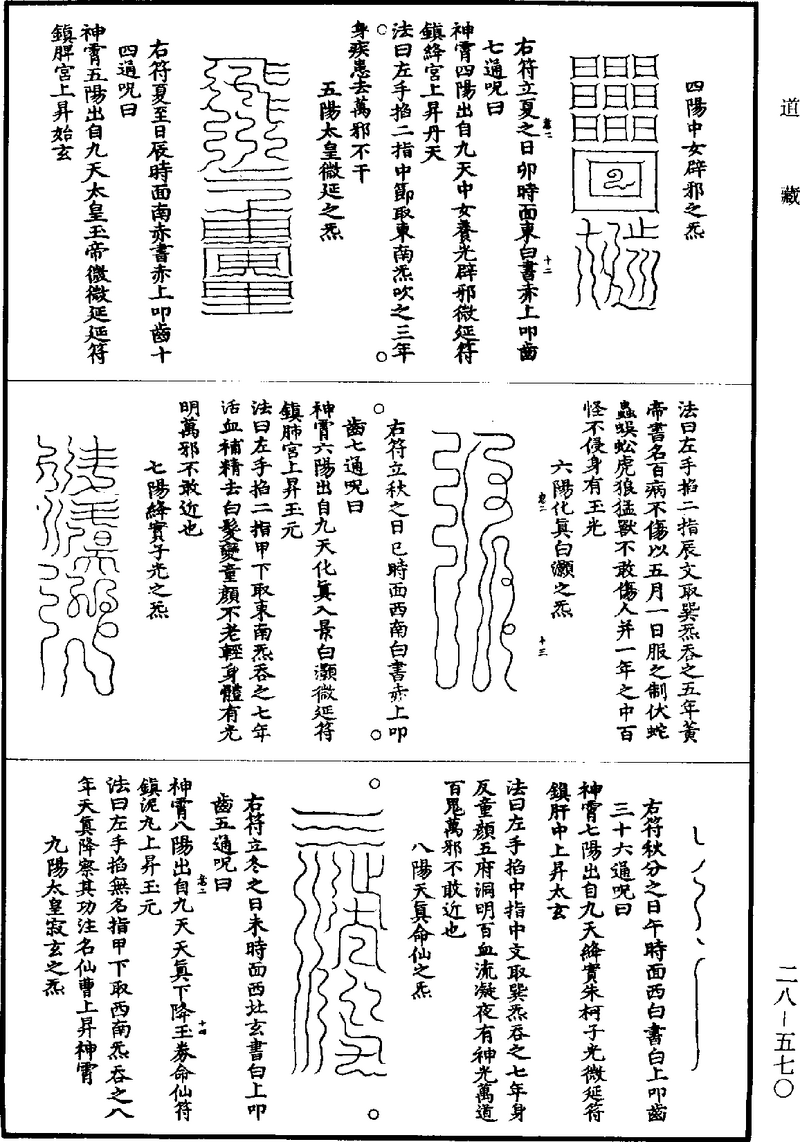 道藏
四陽中女辟邪之炁
右符立夏之日卯時面東白書赤上叩齒
七通呪曰
神霄四陽出自九天中女養光辟邪微延符
鎮絳宮上昇丹天
法曰左手掐二指中節取東南炁吹之三年
身疾患去萬邪不干
五陽太皇微延之炁
右符夏至日辰時面南赤書赤上叩齒十
四通呪曰
神霄五陽出自九天太皇玉帝微微延延符
鎮脾宮上昇始玄
卷二
十二
法曰左手掐二指辰文取巽炁吞之五年黃
帝書名百病不傷以五月一日服之制伏蛇
蟲蜈蚣虎狼猛獸不敢傷人并一年之中百
怪不侵身有玉光
六陽化真白灝之炁
卷二
十三
右符立秋之日巳時面西南白書赤上叩
齒七通呪曰
神霄六陽出自九天化真入景白灝微延符
鎮肺宮上昇玉元
法曰左手掐二指甲下取東南炁吞之七年
活血補精去白髮變童顏不老輕身體有光
明萬邪不敢近也
七陽絳實子光之炁
右符秋分之日午時面西白書白上叩齒
三十六通呪曰
神霄七陽出自九天絳實朱柯子光微延符
鎮肝中上昇太玄
法曰左手掐中指中文取巽炁吞之七年身
反童顏五府洞明百血流凝夜有神光萬道
百鬼萬邪不敢近也
八陽天真命仙之炁
右符立冬之日未時面西北玄書白上叩
齒五通呪曰
卷二
十四
神霄八陽出自九天天真下降玉券命仙符
鎮泥丸上昇玉元
法曰左手掐無名指甲下取西南炁吞之八
年天真降察其功注名仙曹上昇神霄
九陽太皇寂玄之炁
二八—五七〇